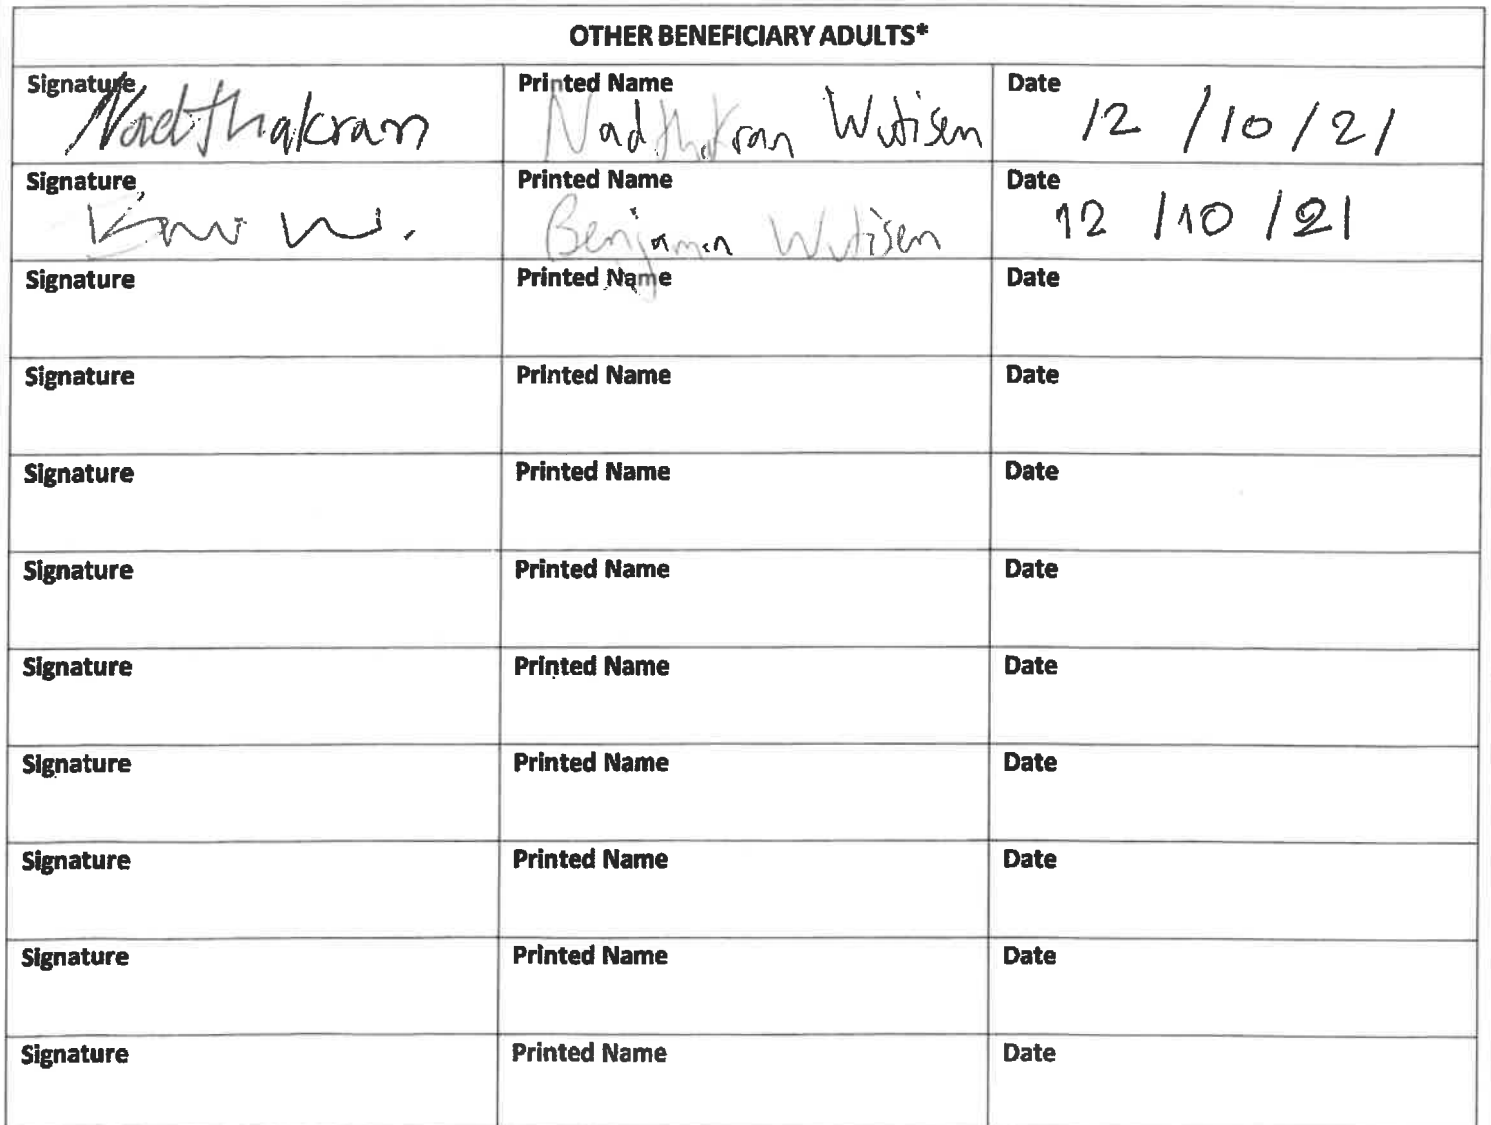 OTHER BENEFICIARY ADULTS*
Signature Printed Name Date
Nadthakran Nadthakran Wutisen 12/10/21
Signature Printed Name Date
W. Benjamin Wutisen 12/10/21
Signature Printed Name Date
Signature Printed Name Date
Signature Printed Name Date
Signature Printed Name Date
Signature Printed Name Date
Signature Printed Name Date
Signature Printed Name Date
Signature Printed Name Date
Signature Printed Name Date